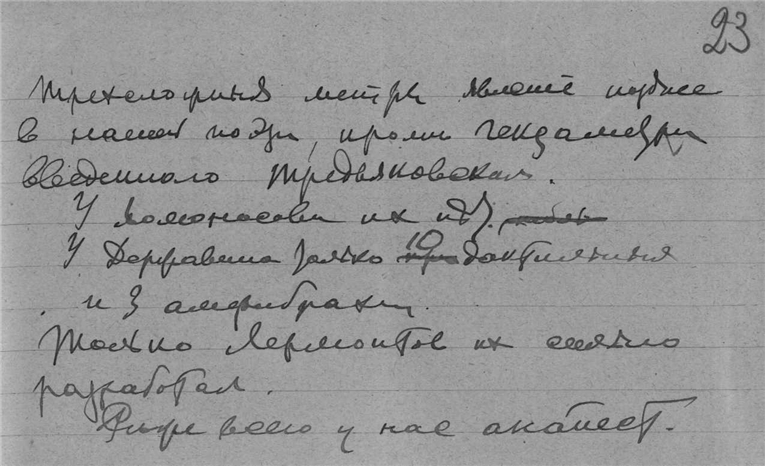 23
Трехсложные метры явление позднее
в нашей поэзии, кроме гекзаметра
введенного Тредьяковским.
У Ломоносова их нет.
У Державина только 10 дактилических
и 3 амфибрахия.
Только Лермонтов их сильно
разработал.
Реже всего у нас анапест.